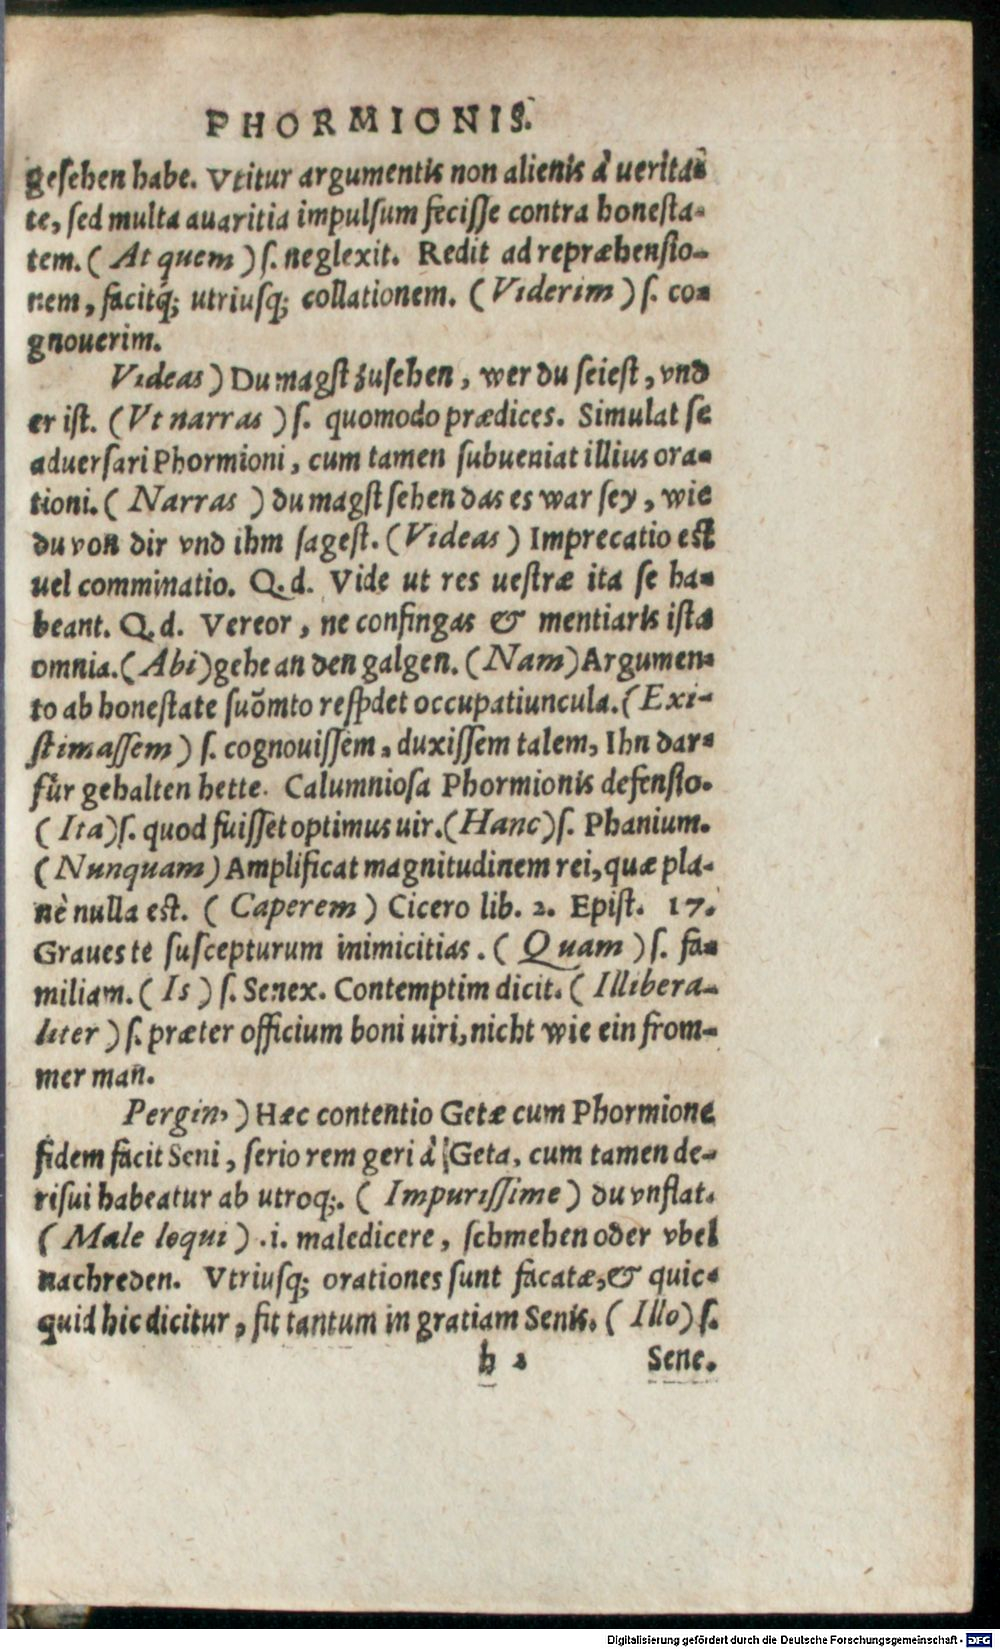 PHORMIONIS.
gesehen habe. Vtitur argumentis non alienis à uerita-
te, sed multa auaritia impulsum fecisse contra honesta-
tem. ( At quem ) s. neglexit. Redit ad repræhensio-
nem, facitq́; utriusq; collationem. ( Viderim ) s. co-
gnouerim.
Videas ) Du magst zusehen, wer du seiest, vnd
er ist. (Vt narras ) s. quomodo prædices. Simulat se
aduersari Phormioni, cum tamen subueniat illius ora-
tioni. ( Narras ) du magst sehen das es war sey, wie
du von dir vnd ihm sagest. (Videas ) Imprecatio est
uel comminatio. Q. d. Vide ut res uestræ ita se ha-
beant. Q. d. Vereor, ne confingas & mentiaris ista
omnia. (Abi) gehe an den galgen. (Nam) Argumen-
to ab honestate suõmto respõdet occupatiuncula. (Exi-
stimassem ) s. cognouissem, duxissem talem, Ihn dar-
für gehalten hette. Calumniosa Phormionis defensio.
( Ita) s. quod fuisset optimus uir. (Hanc) s. Phanium.
(Nunquam) Amplificat magnitudinem rei, quæ pla-
nè nulla est. ( Caperem ) Cicero lib. 2. Epist. 17.
Graues te suscepturum inimicitias. ( Quam ) s. fa-
miliam. ( Is ) s. Senex. Contemptim dicit. ( Illibera-
liter ) s. præter officium boni uiri, nicht wie ein from-
mer man.
Pergin, ) Hæc contentio Getæ cum Phormione
fidem facit Seni, serio rem geri à Geta, cum tamen de-
risui habeatur ab utroq;. ( Impurissime ) du vnflat.
( Male loqui ) .i. maledicere, schmehen oder vbel
nachreden. Vtriusq; orationes sunt facatæ, & quic-
quid hic dicitur, fit tantum in gratiam Senis. ( Illo) s.
h 2 Sene.
Digitalisierung gefördert durch die Deutsche Forschungsgemeinschaft - DFG